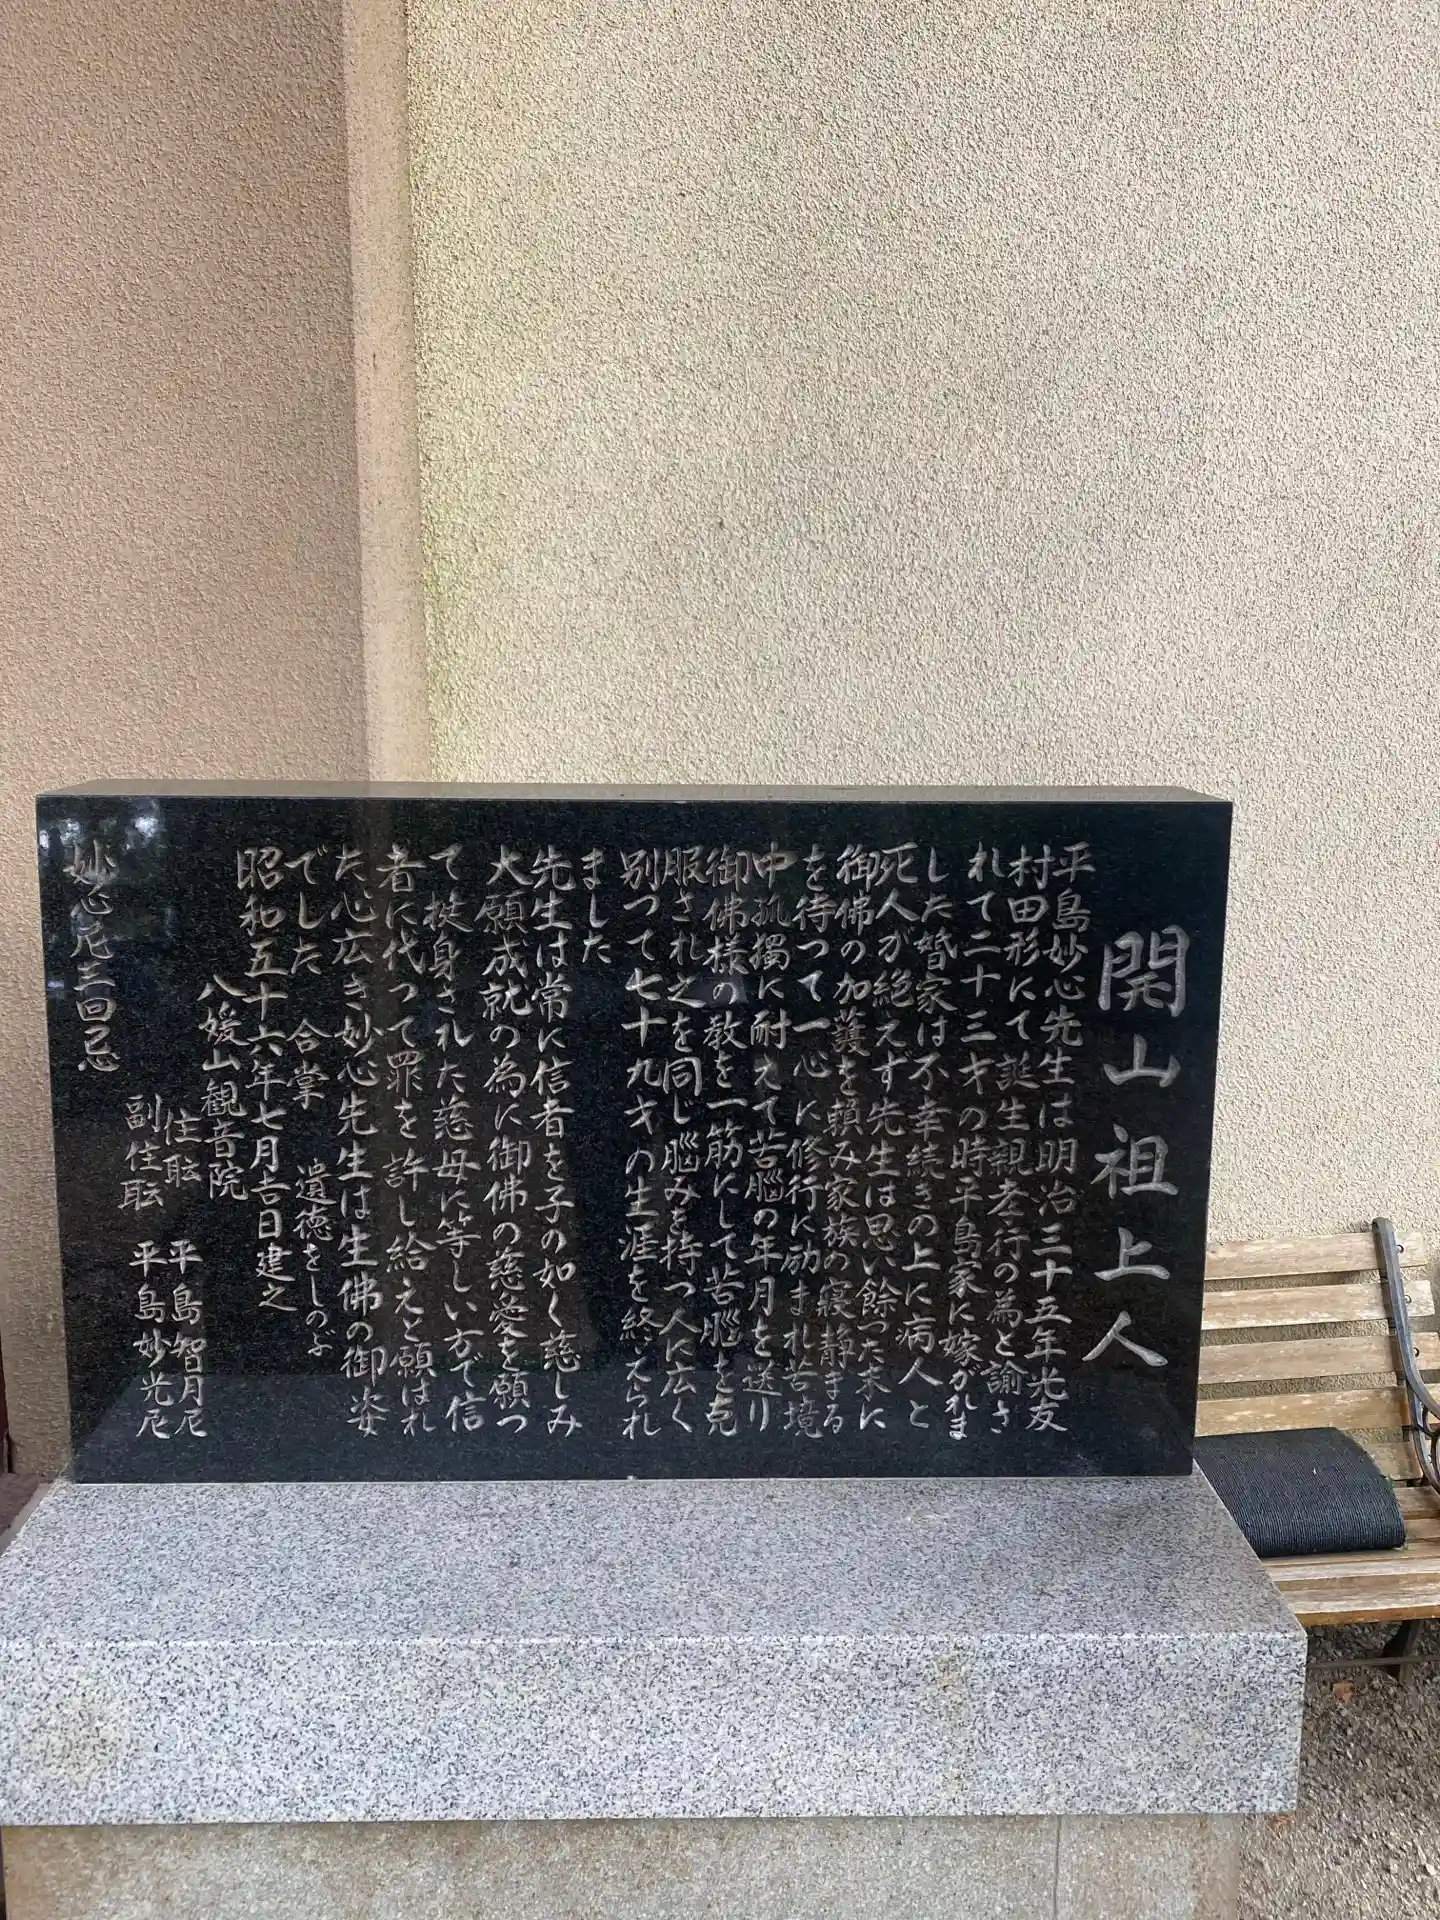 開山祖上人
平島妙心先生は明治三十五年光友
村田形にて誕生親孝行の為と諭さ
れて二十三才の時平島家に嫁がれま
した婚家は不幸続きの上に病人と
死人が絶えず先生は思い餘った末に
御佛の加護を頼み家族の寝静まる
を待つて一心に修行に励まれ苦境
中孤獨に耐えて苦脳の年月を送り
御佛様の教を一筋にして苦脳を克
服され之を同じ脳みを持つ人に広く
別つて七十九才の生涯を終えられ
ました
先生は常に信者を子の如く慈しみ
大願成就の為に御佛の慈愛を願っ
て挺身された慈母に等しい方で信
者に代つて罪を許し給えと願はれ
た心広き妙心先生は生佛の御姿
でした 合掌 遺徳をしのぶ
昭和五十六年七月吉日建之
八媛山観音院
住耺 平島智月尼
副住耺 平島妙光尼
妙心尼三回忌